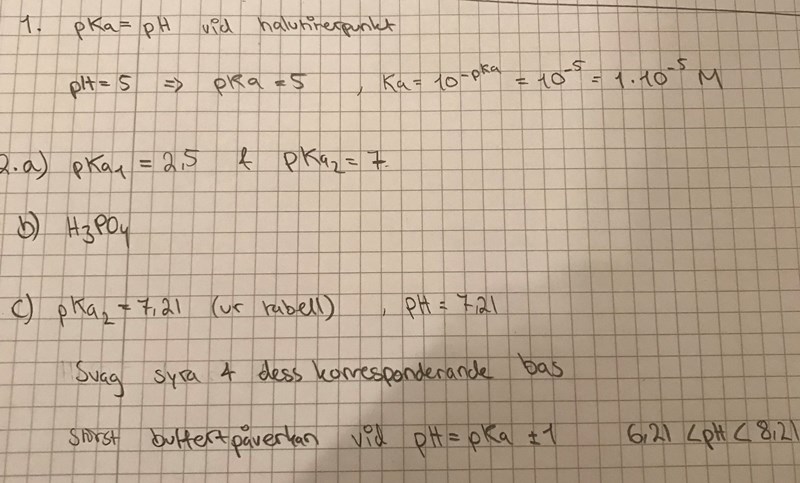 1. pKa = pH vid halvtitrerpunkt
pH = 5 ⇒ pKa = 5 , Ka = 10⁻ᵖᴷᵃ = 10⁻⁵ = 1·10⁻⁵ M
2.a) pKa₁ = 2,5 & pKa₂ = 7
b) H₃PO₄
c) pKa₂ = 7,21 (ur tabell) , pH = 7,21
Svag syra & dess korresponderande bas
Störst buffertpåverkan vid pH = pKa ±1 6,21 < pH < 8,21